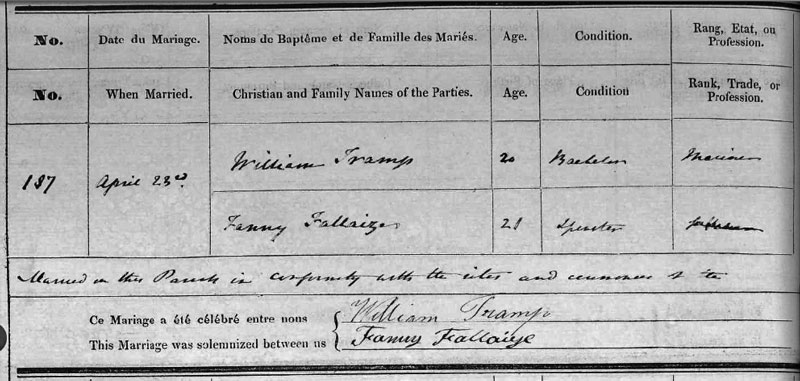 No. Date du Mariage. Noms de Baptême et de Famille des Mariés. Age. Condition. Rang, Etat, ou Profession.
No. When Married. Christian and Family Names of the Parties. Age. Condition Rank, Trade, or Profession.
187 April 23rd William Tramp 20 Bachelor Mariner
Fanny Fallaize 21 Spinster
Married in this Parish in conformity with the rites and ceremonies of the
Ce Mariage a été célébré entre nous William Tramp
This Marriage was solemnized between us Fanny Fallaize